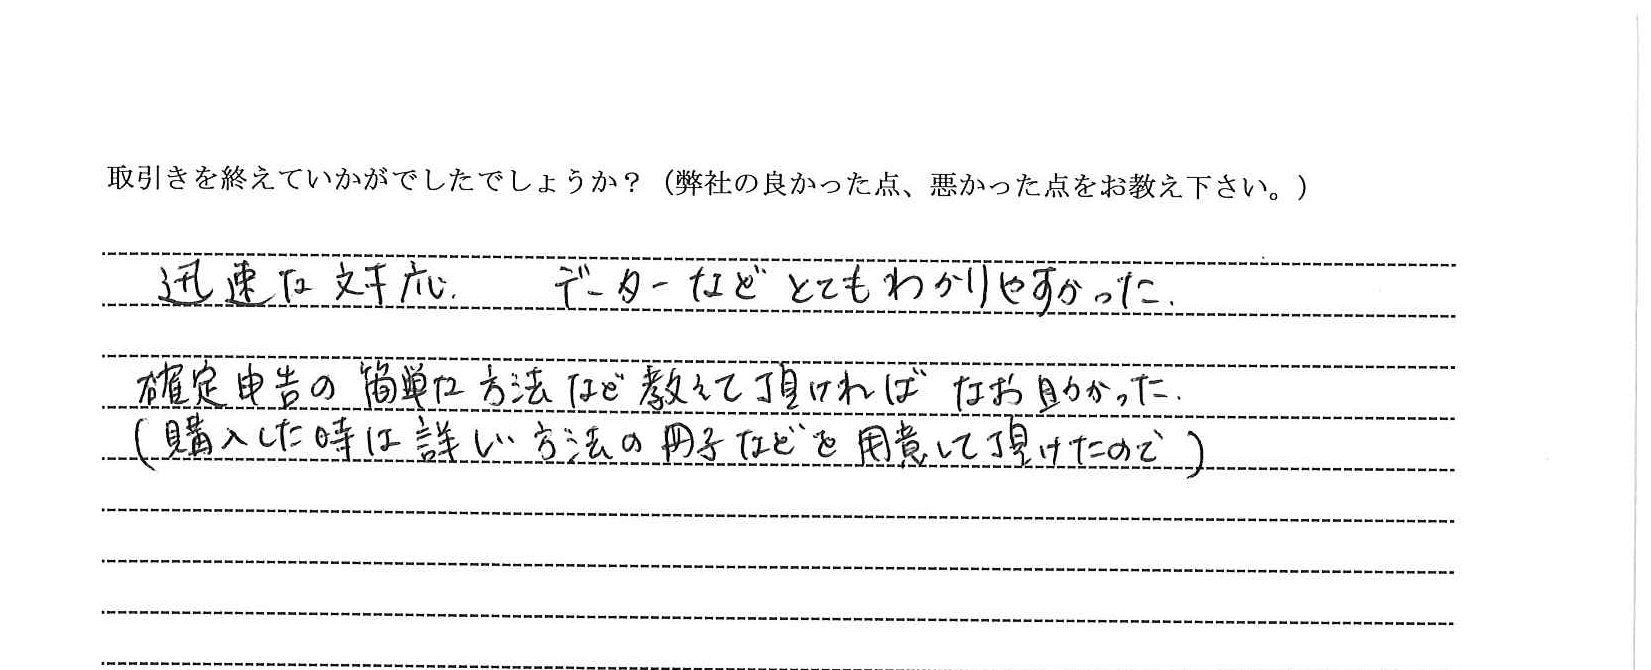 取引きを終えていかがでしたでしょうか？（弊社の良かった点、悪かった点をお教え下さい。）
迅速な対応． データーなどとてもわかりやすかった．
確定申告の簡単な方法など教えて頂ければなお助かった．
(購入した時は詳しい方法の冊子などを用意して頂けたので)